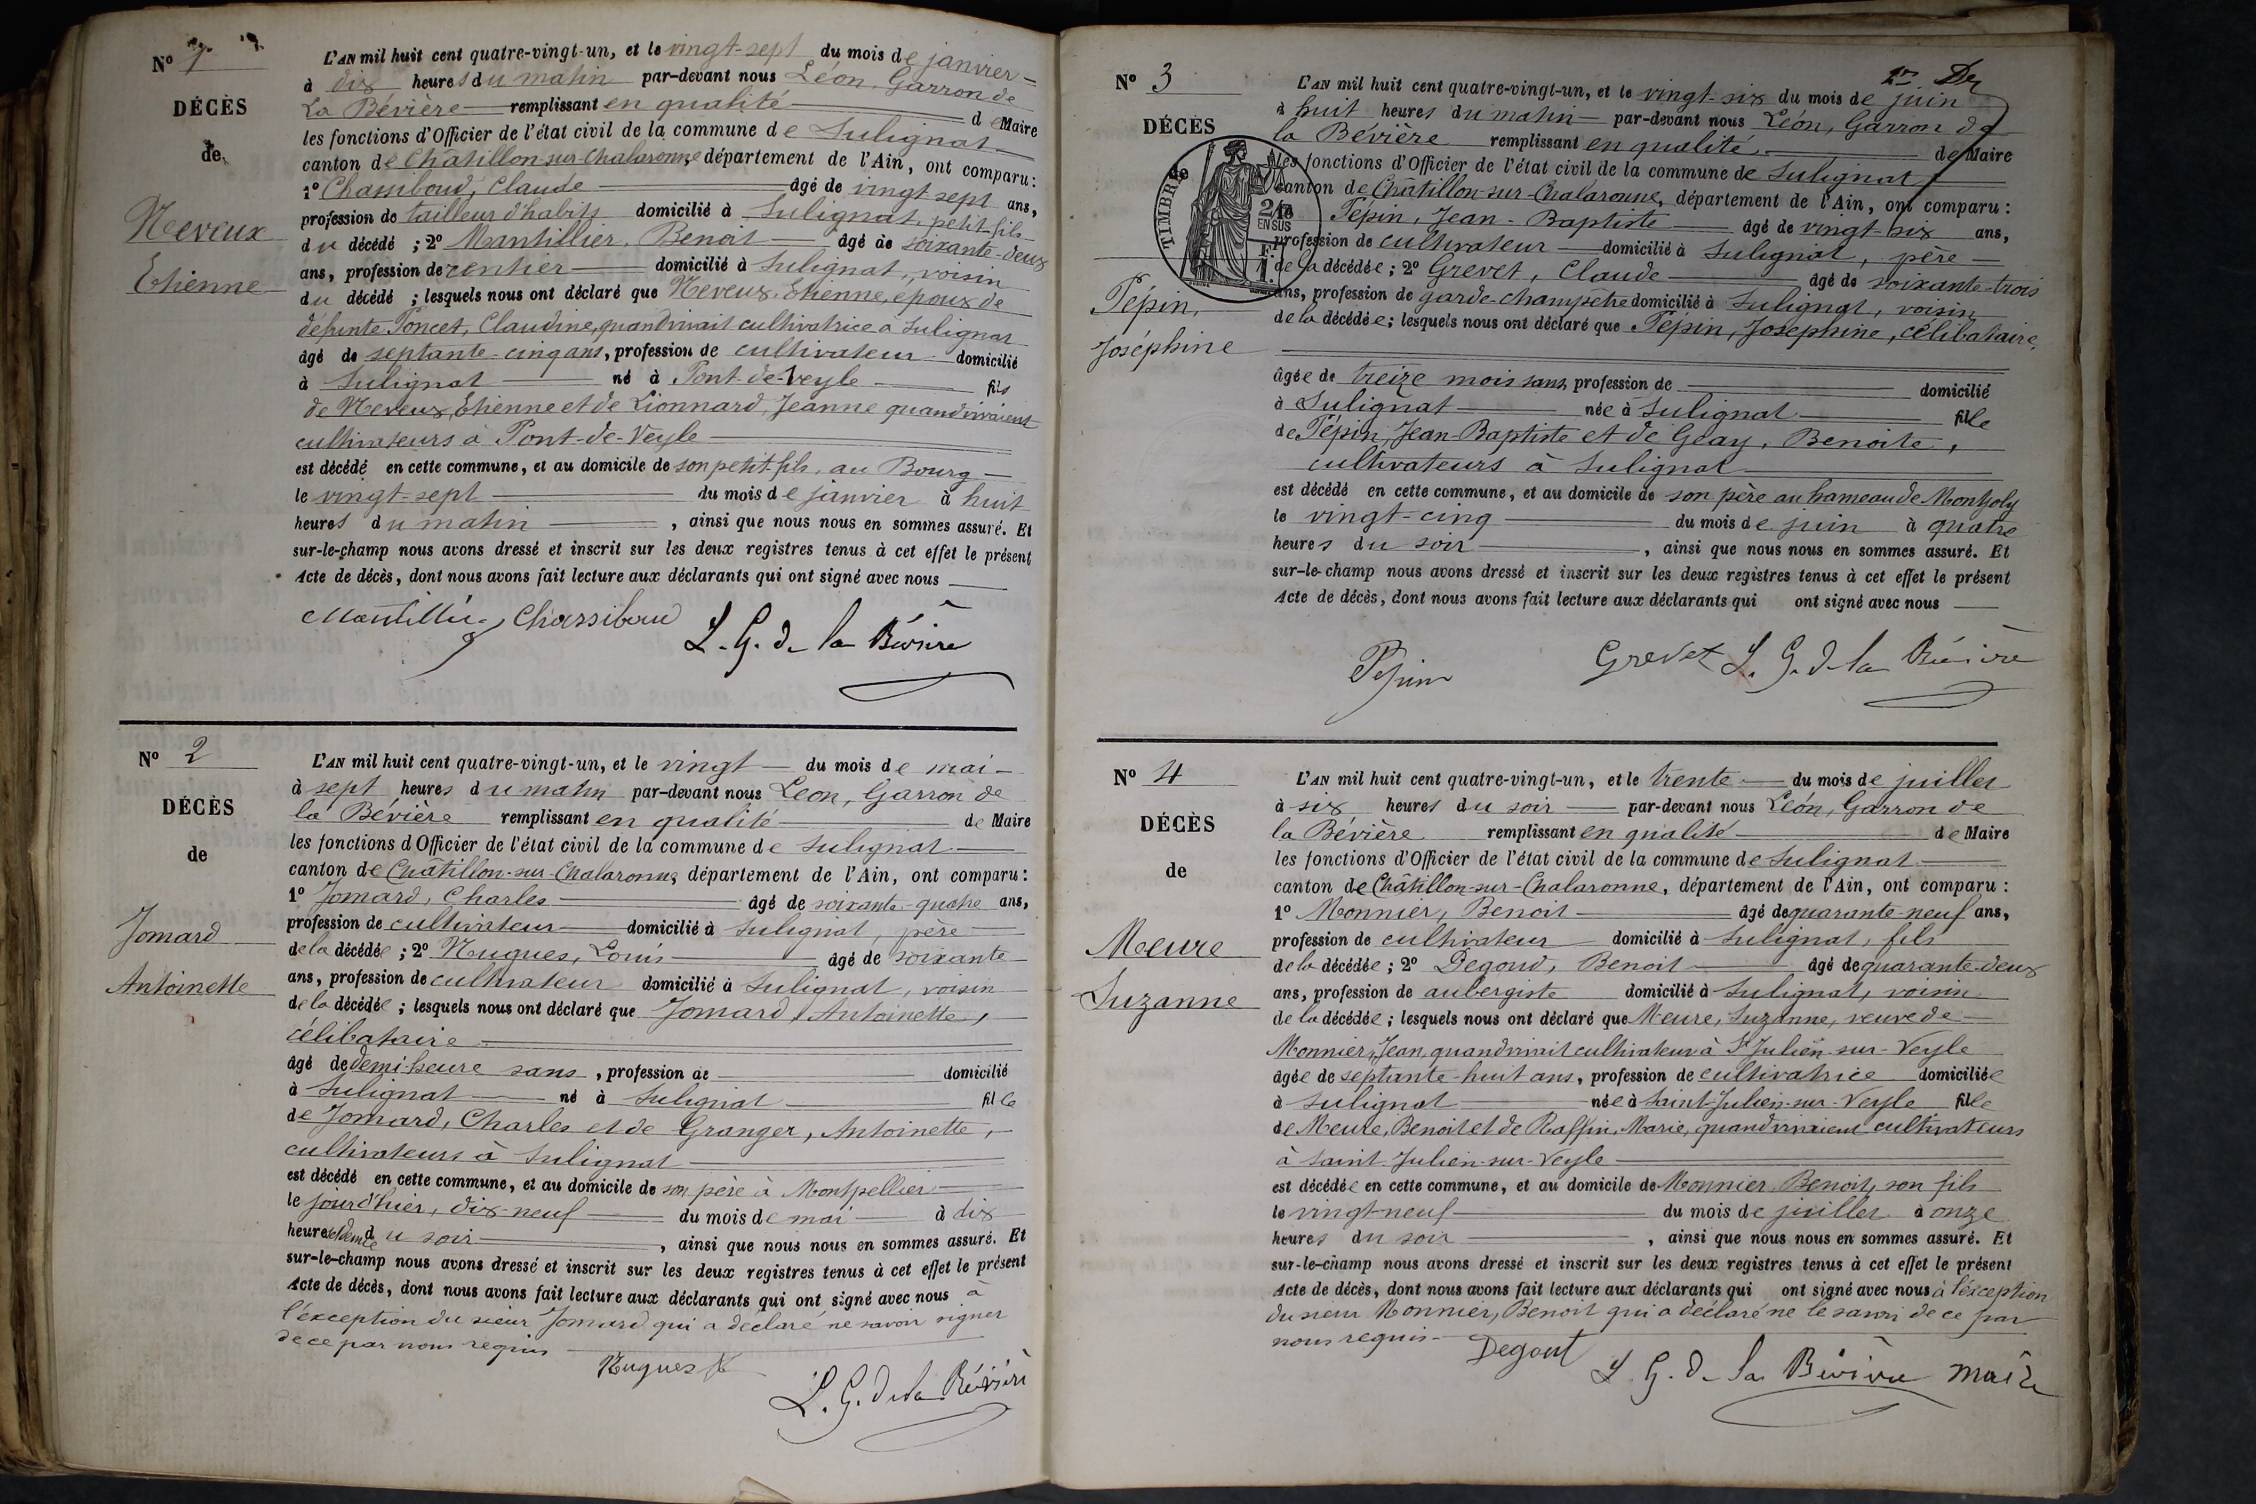 N° 1
DÉCÈS
de
Neveux
Etienne
L'AN mil huit cent quatre-vingt-un, et le vingt-sept du mois de janvier
à dix heures du matin par-devant nous Léon, Garron de
La Bévière remplissant en qualité de Maire
les fonctions d'Officier de l'état civil de la commune de Sulignat
canton de Châtillon-sur-Chalaronne département de l'Ain, ont comparu :
1° Chamboud, Claude âgé de vingt sept ans,
profession de tailleur d'habits domicilié à Sulignat, petit-fils
du décédé ; 2° Mantillier, Benoit âgé de soixante-deux
ans, profession de rentier domicilié à Sulignat, voisin
du décédé ; lesquels nous ont déclaré que Neveux, Etienne, époux de
défunte Poncet, Claudine, quand vivait cultivatrice à Sulignat
âgé de septante-cinq ans, profession de cultivateur domicilié
à Sulignat né à Pont-de-Veyle fils
de Neveux, Etienne et de Lionnard, Jeanne quand vivaient
cultivateurs à Pont-de-Veyle
est décédé en cette commune, et au domicile de son petit-fils, au Bourg
le vingt-sept du mois de janvier à huit
heures du matin , ainsi que nous nous en sommes assuré. Et
sur-le-champ nous avons dressé et inscrit sur les deux registres tenus à cet effet le présent
Acte de décès, dont nous avons fait lecture aux déclarants qui ont signé avec nous
L. G. de la Bévière
N° 2
DÉCÈS
de
Jomard
Antoinette
L'AN mil huit cent quatre-vingt-un, et le vingt du mois de mai
à sept heures du matin par-devant nous Léon, Garron de
la Bévière remplissant en qualité de Maire
les fonctions d'Officier de l'état civil de la commune de Sulignat
canton de Châtillon-sur-Chalaronne, département de l'Ain, ont comparu :
1° Jomard, Charles âgé de soixante-quatre ans,
profession de cultivateur domicilié à Sulignat, père
de la décédée ; 2° Nugues, Louis âgé de soixante
ans, profession de cultivateur domicilié à Sulignat, voisin
de la décédée ; lesquels nous ont déclaré que Jomard, Antoinette,
célibataire
âgé de demi-heure sans , profession de domicilié
à Sulignat né à Sulignat fille
de Jomard, Charles et de Granger, Antoinette,
cultivateurs à Sulignat
est décédé en cette commune, et au domicile de son père à Montpellier
le jourd'hier, dix-neuf du mois de mai à dix
heures et demie du soir , ainsi que nous nous en sommes assuré. Et
sur-le-champ nous avons dressé et inscrit sur les deux registres tenus à cet effet le présent
Acte de décès, dont nous avons fait lecture aux déclarants qui ont signé avec nous à
l'exception du sieur Jomard qui a déclaré ne savoir signer
de ce par nous requis
Nugues
L. G. de la Bévière
N° 3
DÉCÈS
de
Pépin,
Joséphine
TIMBRE
2/10
EN SUS
L'AN mil huit cent quatre-vingt-un, et le vingt-six du mois de juin
à huit heures du matin par-devant nous Léon, Garron de
la Bévière remplissant en qualité de Maire
les fonctions d'Officier de l'état civil de la commune de Sulignat
canton de Châtillon-sur-Chalaronne, département de l'Ain, ont comparu :
Pépin, Jean-Baptiste âgé de vingt-six ans,
profession de cultivateur domicilié à Sulignat, père
de la décédée ; 2° Grevet, Claude âgé de soixante-trois
ans, profession de garde-champêtre domicilié à Sulignat, voisin
de la décédée ; lesquels nous ont déclaré que Pépin, Joséphine, célibataire,
âgée de treize mois sans, profession de domicilié
à Sulignat née à Sulignat fille
de Pépin, Jean-Baptiste et de Geay, Benoite,
cultivateurs à Sulignat
est décédé en cette commune, et au domicile de son père au hameau de Montjoly
le vingt-cinq du mois de juin à quatre
heures du soir , ainsi que nous nous en sommes assuré. Et
sur-le-champ nous avons dressé et inscrit sur les deux registres tenus à cet effet le présent
Acte de décès, dont nous avons fait lecture aux déclarants qui ont signé avec nous
Pepin Grevet L. G. de la Bévière
N° 4
DÉCÈS
de
Meure
Suzanne
L'AN mil huit cent quatre-vingt-un, et le trente du mois de juillet
à six heures du soir par-devant nous Léon, Garron de
la Bévière remplissant en qualité de Maire
les fonctions d'Officier de l'état civil de la commune de Sulignat
canton de Châtillon-sur-Chalaronne, département de l'Ain, ont comparu :
1° Monnier, Benoit âgé de quarante-neuf ans,
profession de cultivateur domicilié à Sulignat, fils
de la décédée ; 2° Degoud, Benoit âgé de quarante-deux
ans, profession de aubergiste domicilié à Sulignat, voisin
de la décédée ; lesquels nous ont déclaré que Meure, Suzanne, veuve de
Monnier, Jean, quand vivait cultivateur à St Julien-sur-Veyle
âgée de septante-huit ans, profession de cultivatrice domiciliée
à Sulignat née à Saint-Julien-sur-Veyle fille
de Meure, Benoit et de Raffin, Marie, quand vivaient cultivateurs
à Saint-Julien-sur-Veyle
est décédée en cette commune, et au domicile de Monnier Benoit, son fils
le vingt-neuf du mois de juillet à onze
heures du soir , ainsi que nous nous en sommes assuré. Et
sur-le-champ nous avons dressé et inscrit sur les deux registres tenus à cet effet le présent
Acte de décès, dont nous avons fait lecture aux déclarants qui ont signé avec nous à l'exception
du sieur Monnier, Benoit qui a déclaré ne le savoir de ce par
nous requis
Degout L. G. de la Bévière maire